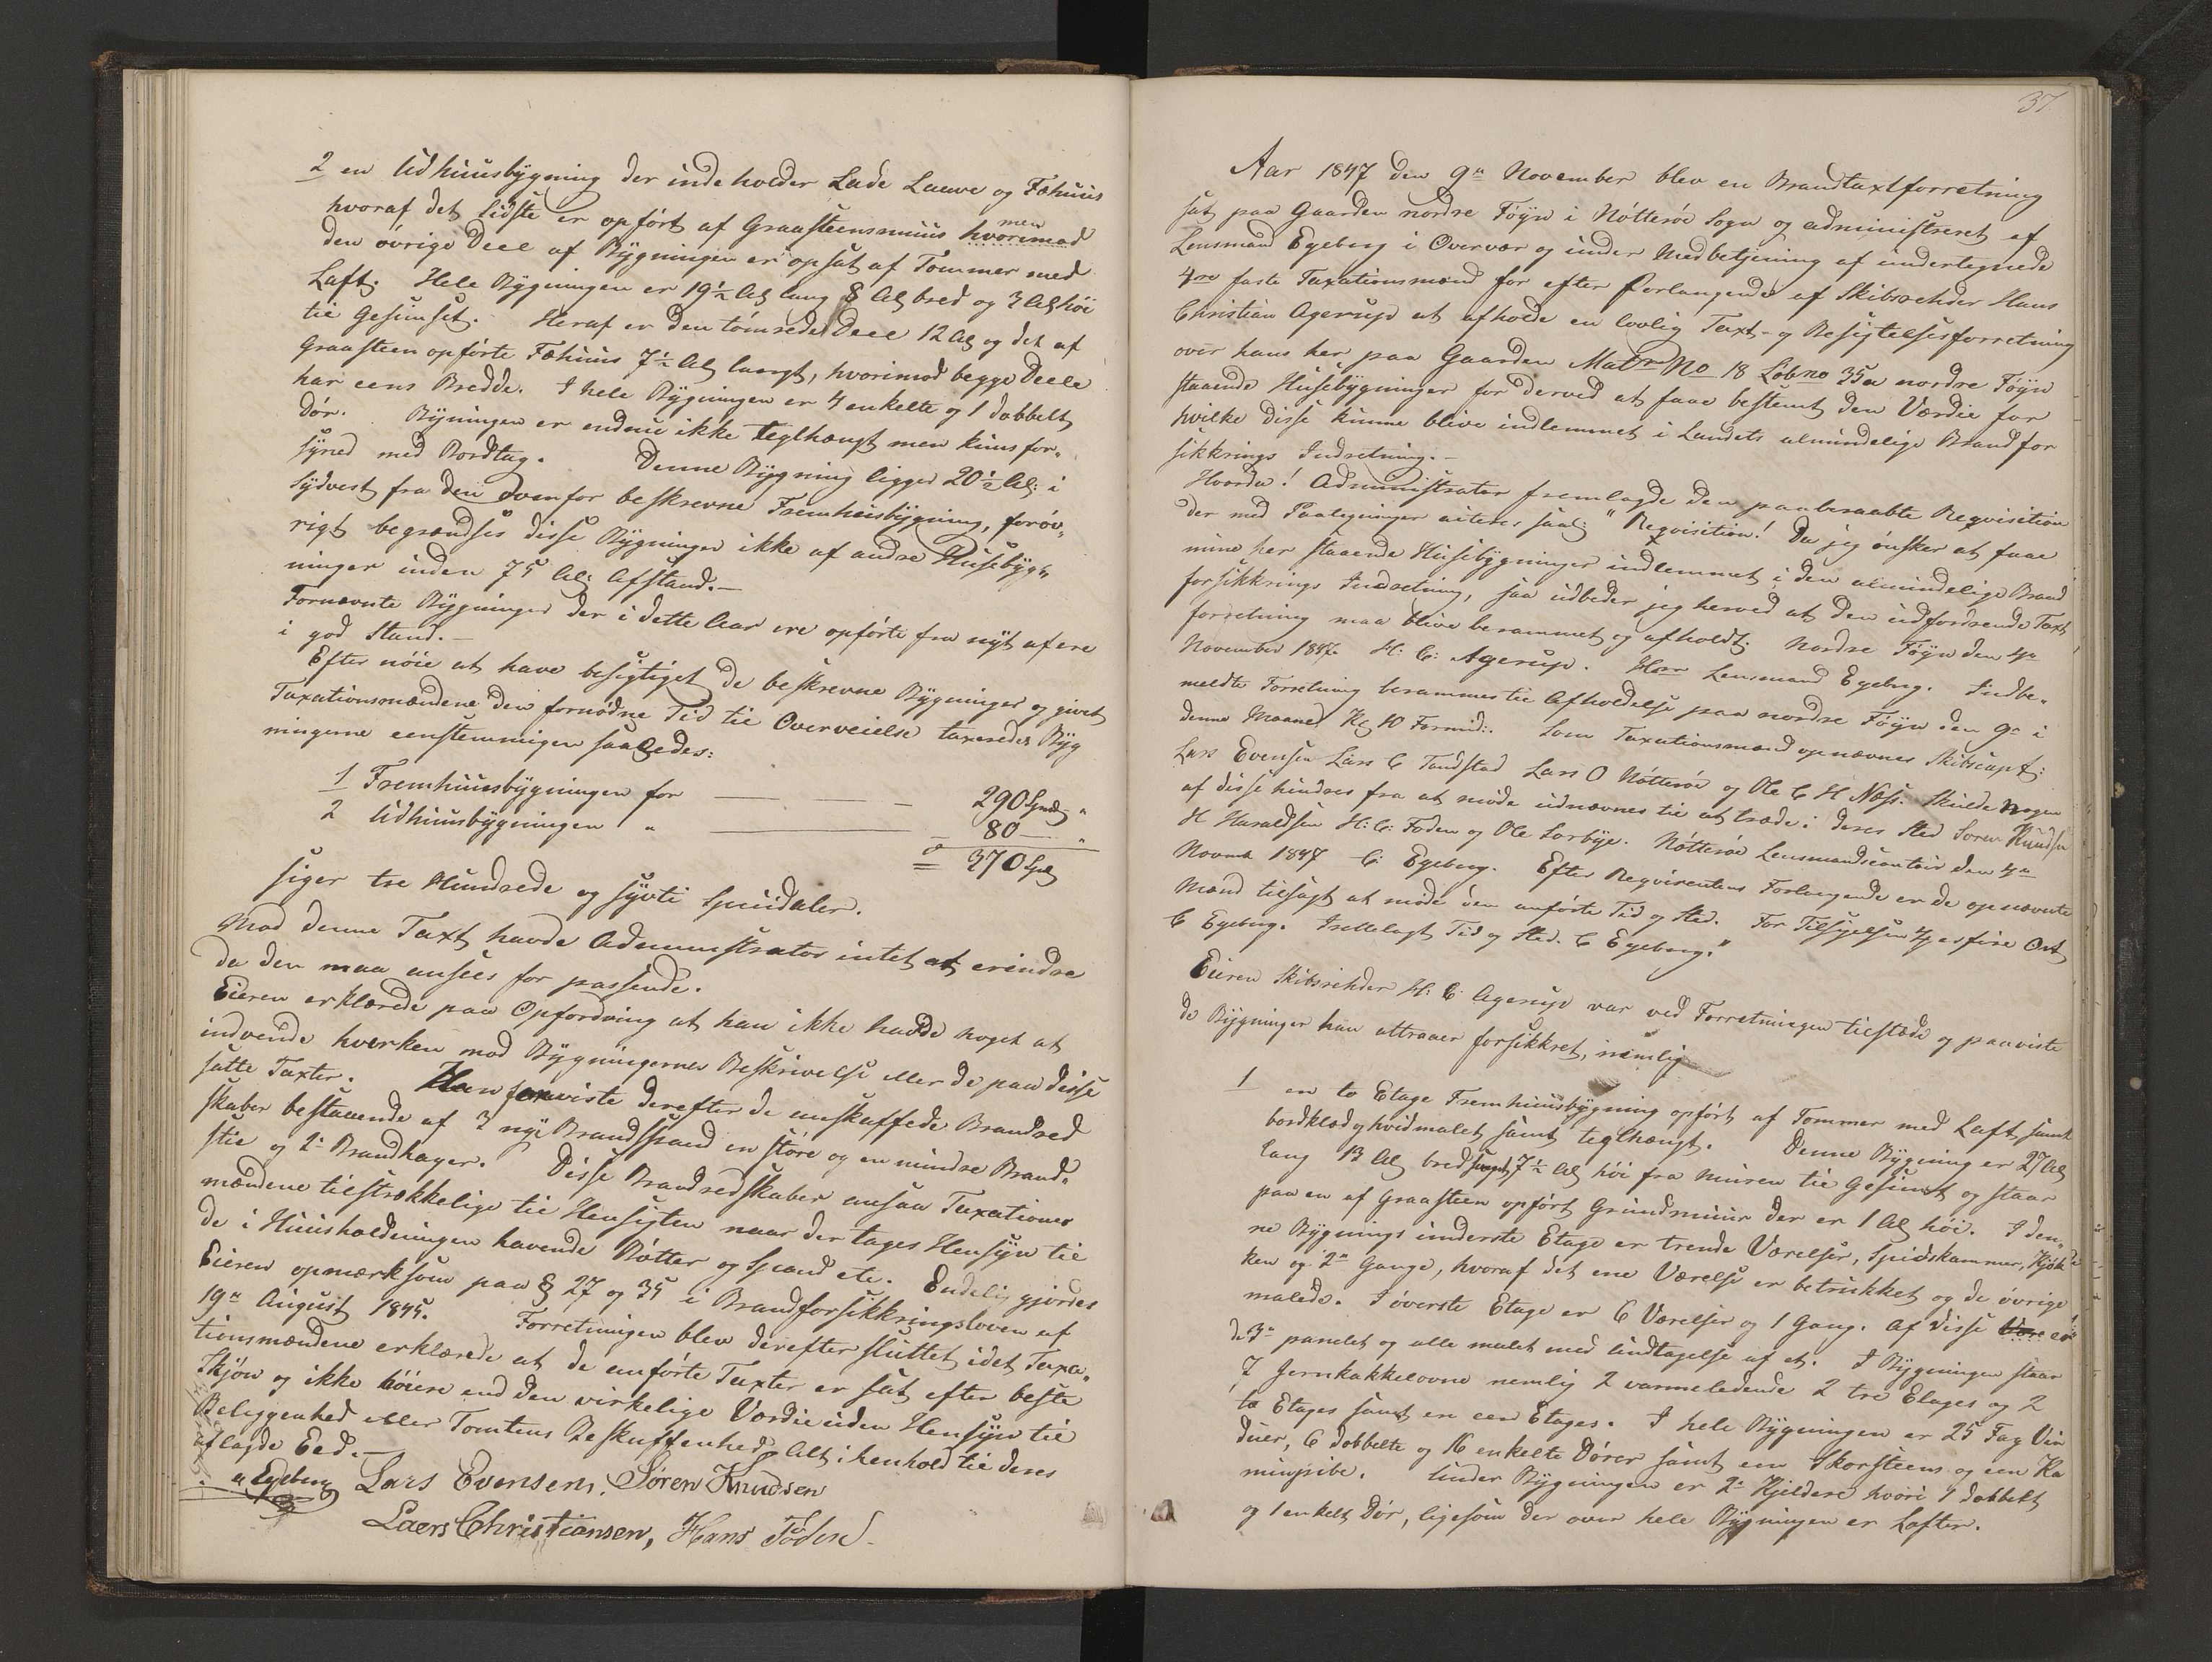 2 en Udhuusbÿgning der indeholder Lade Lauve og Fæhuus
hvoraf det sidste er opført af Graasteensmuur hvorimod men
den øvrige Deel af Bÿgningen er opsat af Tømmer med
Laft. Hele Bÿgningen er 19½ Al lang 8 Al bred og 3 Al høi
til Gesimset. Heraf er den tømrede Deel 12 Al og det af
Graasteen opførte Fæhuus 7½ Al langt, hvorimod begge Deele
har eens Bredde. I hele Bÿgningen er 4 enkelte og 1 dobbelt
Dør. Bÿningen er endnu ikke teglhængt men kuns for-
sÿned med Bordtag. Denne Bÿgning ligger 20½ Al: i
Sÿdvest fra den ovenfor beskrevne Fremhuusbÿgning, forøv-
rigt begrændses disse Bÿgninger ikke af andre Husebÿg-
ninger inden 75 Al: Afstand.-
Fornævnte Bÿgninger der i dette Aar ere opførte fra nÿt af ere
i god Stand.-
Efter nøie at have besigtiget de beskrevne Bÿgninger og givet
Taxationsmændene den fornødne Tid til Overveielse taxeredes Bÿg
ningerne eenstemmigen saaledes:
1 Fremhuusbÿgningen for — — — 290 Spd "
2 Udhuusbÿgningen " ——— 80 — "
= 370 Spd
siger tre Hundrede og sÿvti Speciedaler.
Mod denne Taxt havde Administrator intet at erindre
da den maa ansees for passende.
Eieren erklærede paa Opfordring at han ikke havde noget at
indvende hverken mod Bÿgningernes Beskrivelse eller de paa disse
satte Taxter. Han foreviste derefter de anskaffede Brandred
skaber bestaaende af 3 nÿe Brandspand en støre og en mindre Brand-
stie og 2 Brandhager. Disse Brandredskaber ansaa Taxations
mændene tilstrækkelige til Hensigten naar der tages Hensÿn til
de i Huusholdningen havende Bøtter og Spand etc. Endelig gjordes
Eieren opmærksom paa § 27 og 35 i Brandforsikkringsloven af
19n August 1845. Forretningen blev derefter sluttet idet Taxa-
tionsmændene erklærede at de anførte Taxter er sat efter beste
Skjøn og ikke høiere end den virkelige Værdie uden Hensÿn til
Beliggenhed eller Tomtens Beskaffenhed Alt i henhold til deres
aflagde Eed.-
C Egeberg Lars Evensen. Søren Knudsen
Laers Christiansen, Hans Föden
37
Aar 1847 den 9n November blev en Brandtaxtforretning
sat paa Gaarden nordre Føÿn i Nøtterøe Sogn og administreret af
Lensmand Egeberg i Overvær og under Medbetjening af undertegnede
4re faste Taxationsmænd for efter Forlangende af Skibsrehder Hans
Christian Agerup at afholde en lovlig Taxt- og Besigtelsesforretning
over hans her paa Gaarden Matr No 18 Løbno 35a nordre Føÿn
staaende Husebÿgninger for derved at faae bestemt den Værdie for
hvilke disse kunne blive indlemmet i Landets almindelige Brandfor
sikkrings Indretning.-
Hvorda! Administrator fremlagde den paaberaabte Reqvisition
der med Paategninger aiteres saal: "Reqvisition! Da jeg ønsker at faae
mine her staaende Husebÿgninger indlemmet i den almindelige Brand
forsikkrings Indretning, saa udbeder jeg herved at den udfordrende Taxt
forretning maa blive berammet og afholdt. Nordre Føÿn den 4n
November 1847. H: C: Agerup. Herr Lensmand Egeberg. Indbe-
meldte Forretning berammes til Afholdelse paa nordre Føÿn den 9n i
denne Maaned Kl 10 Formid:. Som Taxationsmænd opnævnes Skibscapt:
Lars Evensen Lars C Tandstad Lars O Nøtterøe og Ole C H Næss. Skulde nogen
af disse hindres fra at møde udnævnes til at træde i deres Sted Søren Knudsen
H Haraldsen H: C: Foden og Ole Sorbÿe. Nøtterøe Lensmandscontoir den 4n
Novmb 1847 C: Egeberg. Efter Reqvirentens Forlangende er de opnævnte
Mænd tilsagt at møde den anførte Tid og Sted. For Tilsigelsen 4 es fire Ort
C Egeberg. Irettelagt Tid og Sted. C Egeberg."
Eieren Skibsrehder H: C: Agerup var ved Forretningen tilstæde og paaviste
de Bÿgninger han attraaer forsikkret, nemlig
1 en to Etage Fremhuusbÿgning opført af Tømmer med Laft, samt
bordklæd og hvidmalet samt teglhængt. Denne Bÿgning er 27 Al
lang 13 Al bred samt 7½ Al høi fra Muren til Gesimst og staar
paa en af Graasteen opført Grundmuur der er 1 Al høi. I den-
ne Bÿgnings underste Etage er trende Værelser, Spiskammer, Kjøk
ken og 2n Gange, hvoraf det ene Værelse er betrukket og de øvrige
malede. I øverste Etage er 6 Værelser og 1 Gang. Af disse Vær er
de 3n panelet og alle malet med Undtagelse af et. I Bÿgningen staar
7 Jernkakkelovne nemlig 2 varmeledende 2 tre Etages og 2
to Etages samt en een Etages. I hele Bÿgningen er 25 Fag Vin
duer, 6 dobbelte og 16 enkelte Dører samt een Skorsteen og een Ka
minpibe. Under Bÿgningen er 2 Kjeldere hvori 1 dobbelt
og 1 enkelt Dør, ligesom der over hele Bÿgningen er Lofter.